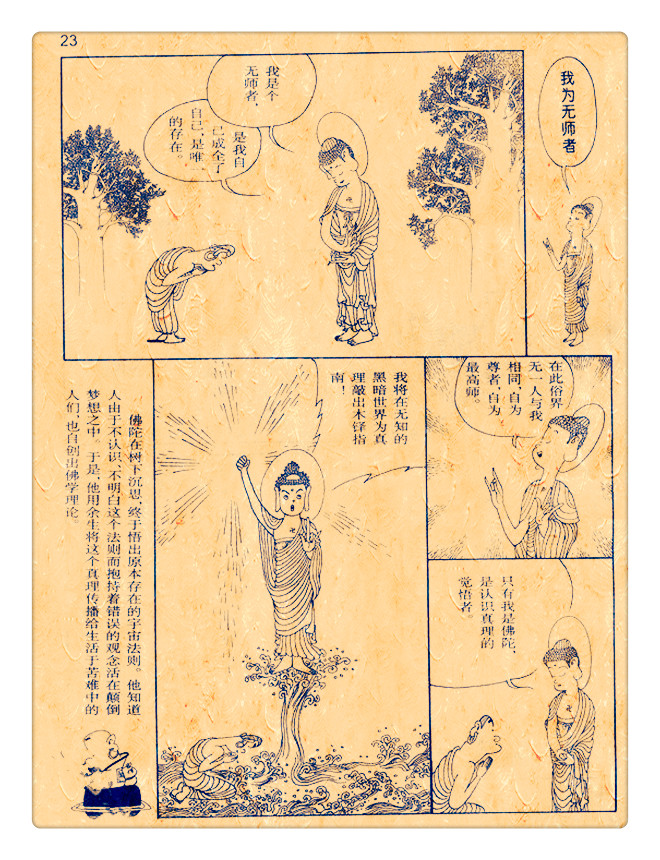 23
我为无师者
我是个
无师者，
是我自
己成全了
自己，是唯一
的存在。
在此俗界
无一人与我
相同，自为
尊者，自为
最高师。
我将在无知的
黑暗世界为真
理敲出木铎指
南！
只有我是佛陀，
是认识真理的
觉悟者。
佛陀在树下沉思，终于悟出原本存在的宇宙法则。他知道
人由于不认识、不明白这个法则而抱持着错误的观念活在颠倒
梦想之中。于是，他用余生将这个真理传播给生活于苦难中的
人们，也自创出佛学理论。